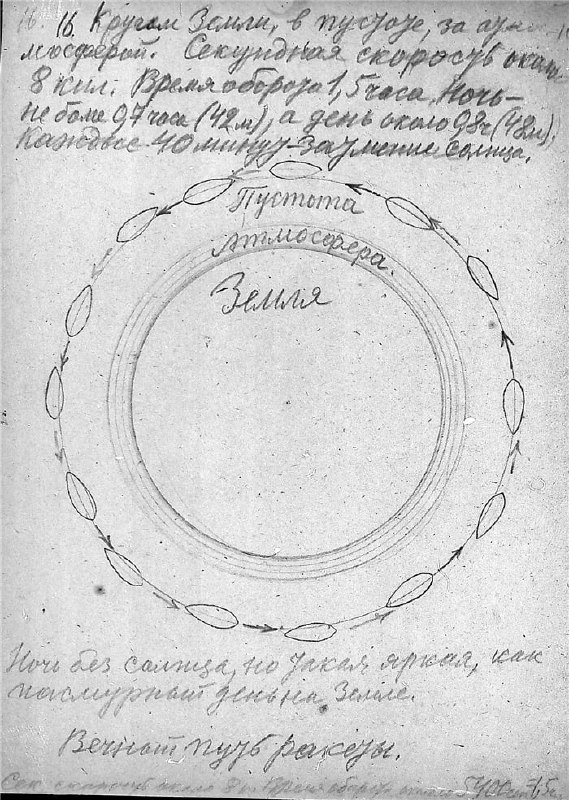 16. Кругом Земли, в пустоте, за ат-
мосферой. Секундная скорость около
8 кил. Время оборота 1,5 часа. Ночь –
не более 0,7 часа (42 м), а день около 0,8 ч (48 м).
Каждые 40 минут – затмение солнца.
Пустота
Атмосфера.
Земля
Ночь без солнца, но такая яркая, как
пасмурный день на Земле.
Вечный путь ракеты.
Сек. скорость около 8 к. Время оборота около 1,5 ч.